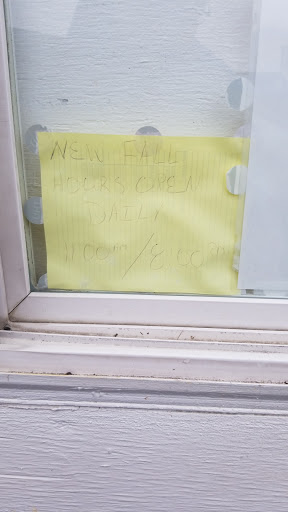 NEW FALL
HOURS OPEN
DAILY
11:00 am / 8:00 pm